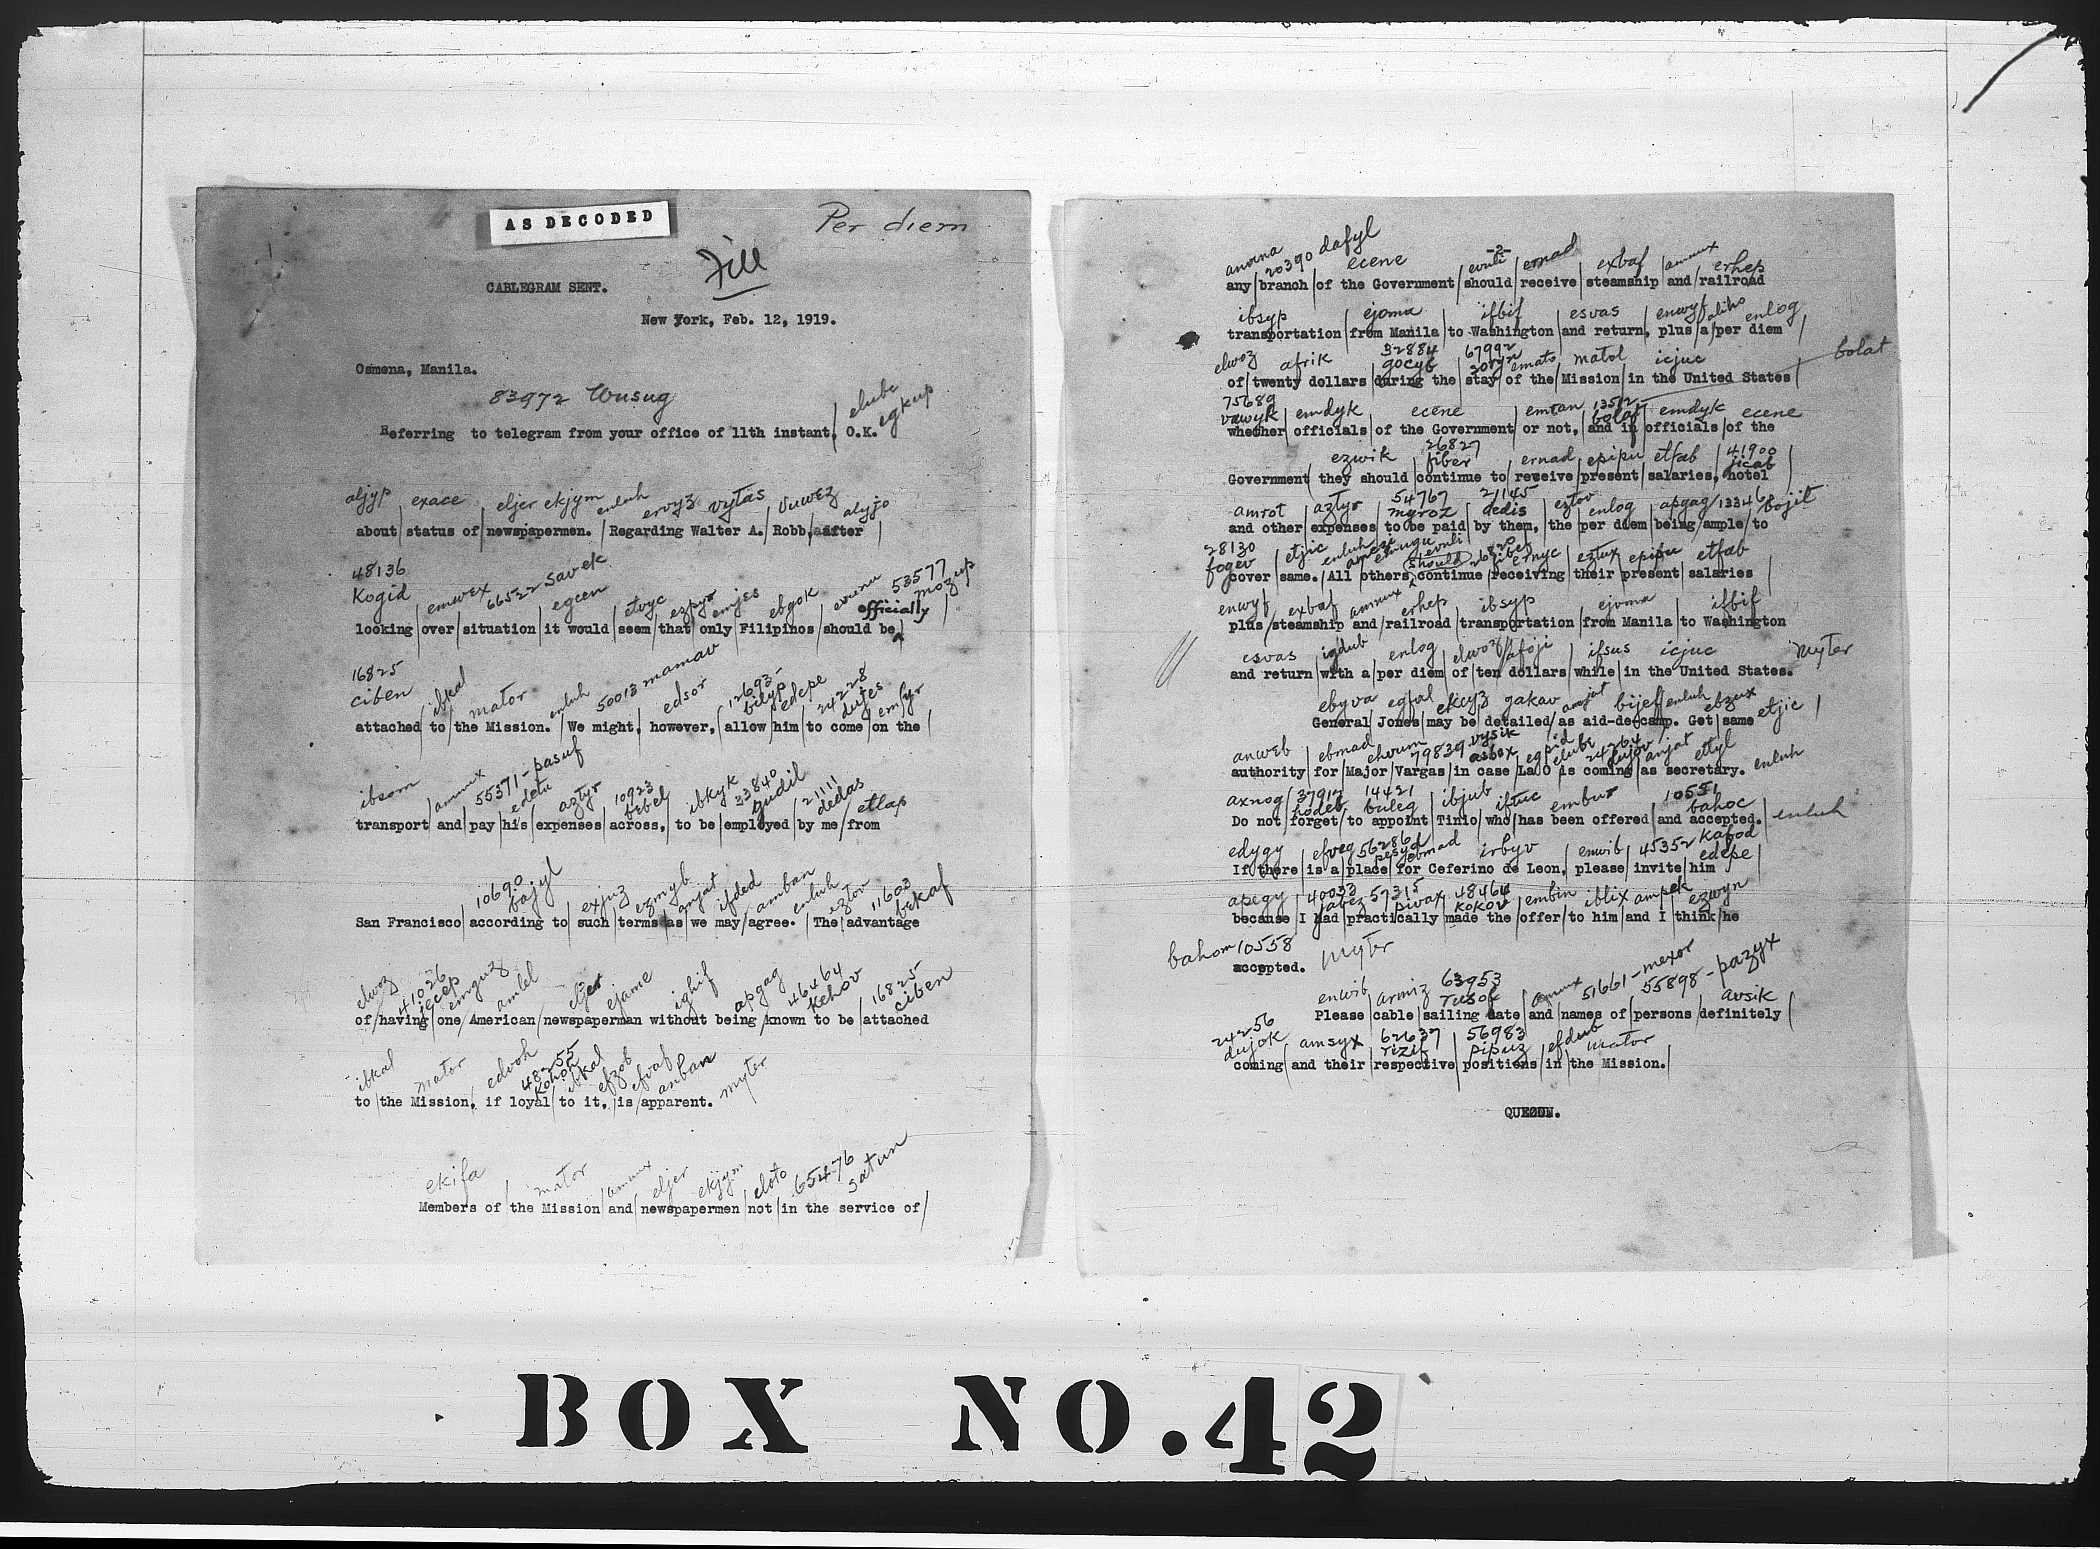 AS DECODED
Per diem
File
CABLEGRAM SENT.
New York, Feb. 12, 1919.
Osmena, Manila.
83972 Wusug
elube egkup
Referring to telegram from your office of 11th instant, O.K.
aljyp exace eljer ekjym enluh ervyz vytas vuwez alyjo
about status of newspapermen. Regarding Walter A. Robb, after
48136
Kogid emwex 66522 savek egcen etvyc ezpyr emjes ebgok evunu 53577 mozup
officially
looking over situation it would seem that only Filipinos should be
16825
ciben ibkal mator enluh 50013 mamav edsor 12693 bilyp edepe 24228 dujes emfyr
attached to the Mission. We might, however, allow him to come on the
ibsom amnux 55371-pasuf edetu aztyr 10923 bebel ibkyk 33840 gudil 2111 dedas etlax
transport and pay his expenses across, to be employed by me from
10690 bajyl exjuz ezmyb anjat ifded amban enluh eztov 11603 bekaf
San Francisco according to such terms as we may agree. The advantage
elwoz 41026 jecep emguz ambel eljer ejame ighif apgag 46464 kehov 16825 ciben
of having one American newspaperman without being known to be attached
ibkal mator edvoh 48255 kohon ibkal efzob efvaf anban myter
to the Mission, if loyal to it, is apparent.
ekifa mator amnux eljer ekjym eloto 65476 satun
Members of the Mission and newspapermen not in the service of
-2-
anvna 20390 dafyl ecene evuli ernad exbaf amnux erhep
any branch of the Government should receive steamship and railroad
ibsyp ejoma ifbif esvas enwyf aliho enlog
transportation from Manila to Washington and return, plus a per diem
elwoz afrik 32884 gocyb 67992 soryn emato matol icjuc bolat
of twenty dollars during the stay of the Mission in the United States
75689
vawyk emdyk ecene emtan 13512 bolaf emdyk ecene
whether officials of the Government or not, and if officials of the
ezwik 26827 fiber ernad epipu etfab 41900 jicab
Government they should continue to receive present salaries, hotel
amrot aztyr 54767 myroz 21145 dedis eztov enlog apgag 13346 bojit
and other expenses to be paid by them, the per diem being ample to
28130
fogev etjic enluh evuli should ernyc eztux epipu etfab
cover same. All others continue receiving their present salaries
enwyf exbaf amnux erhep ibsyp ejoma ifbif
plus steamship and railroad transportation from Manila to Washington
esvas igdub enlog elwoz afoji ifsus icjuc myter
and return with a per diem of ten dollars while in the United States.
ebyva egfal ekcyz gakav anjat bijef enluh ebzux etjic
General Jones may be detailed as aid-de-camp. Get same
anweb ebmad ehvum 79839 vysik asbox egpid elube 24264 dujov anjat ettyl enluh
authority for Major Vargas in case LaO is coming as secretary.
axnog 37917 hodeb 14421 buleg ibjub iftuc embur 10551 bahoc enluh
Do not forget to appoint Tinio who has been offered and accepted.
edygy efveg 56286 pesyd ebmad irbyv enwib 45352 kafod edepe
If there is a place for Ceferino de Leon, please invite him
apegy 40033 jabez 57315 pivax 48464 kokov embin iblix ampek ezwyn
because I had practically made the offer to him and I think he
bahom 10558 myter
accepted.
enwib armiz 63953 rusof amnux 51661-mexor 55898-pazyx avsik
Please cable sailing date and names of persons definitely
24256
dujok amsyx 62637 rizif 56983 pipuz efdub mator
coming and their respective positions in the Mission.
QUEZON.
BOX NO. 42